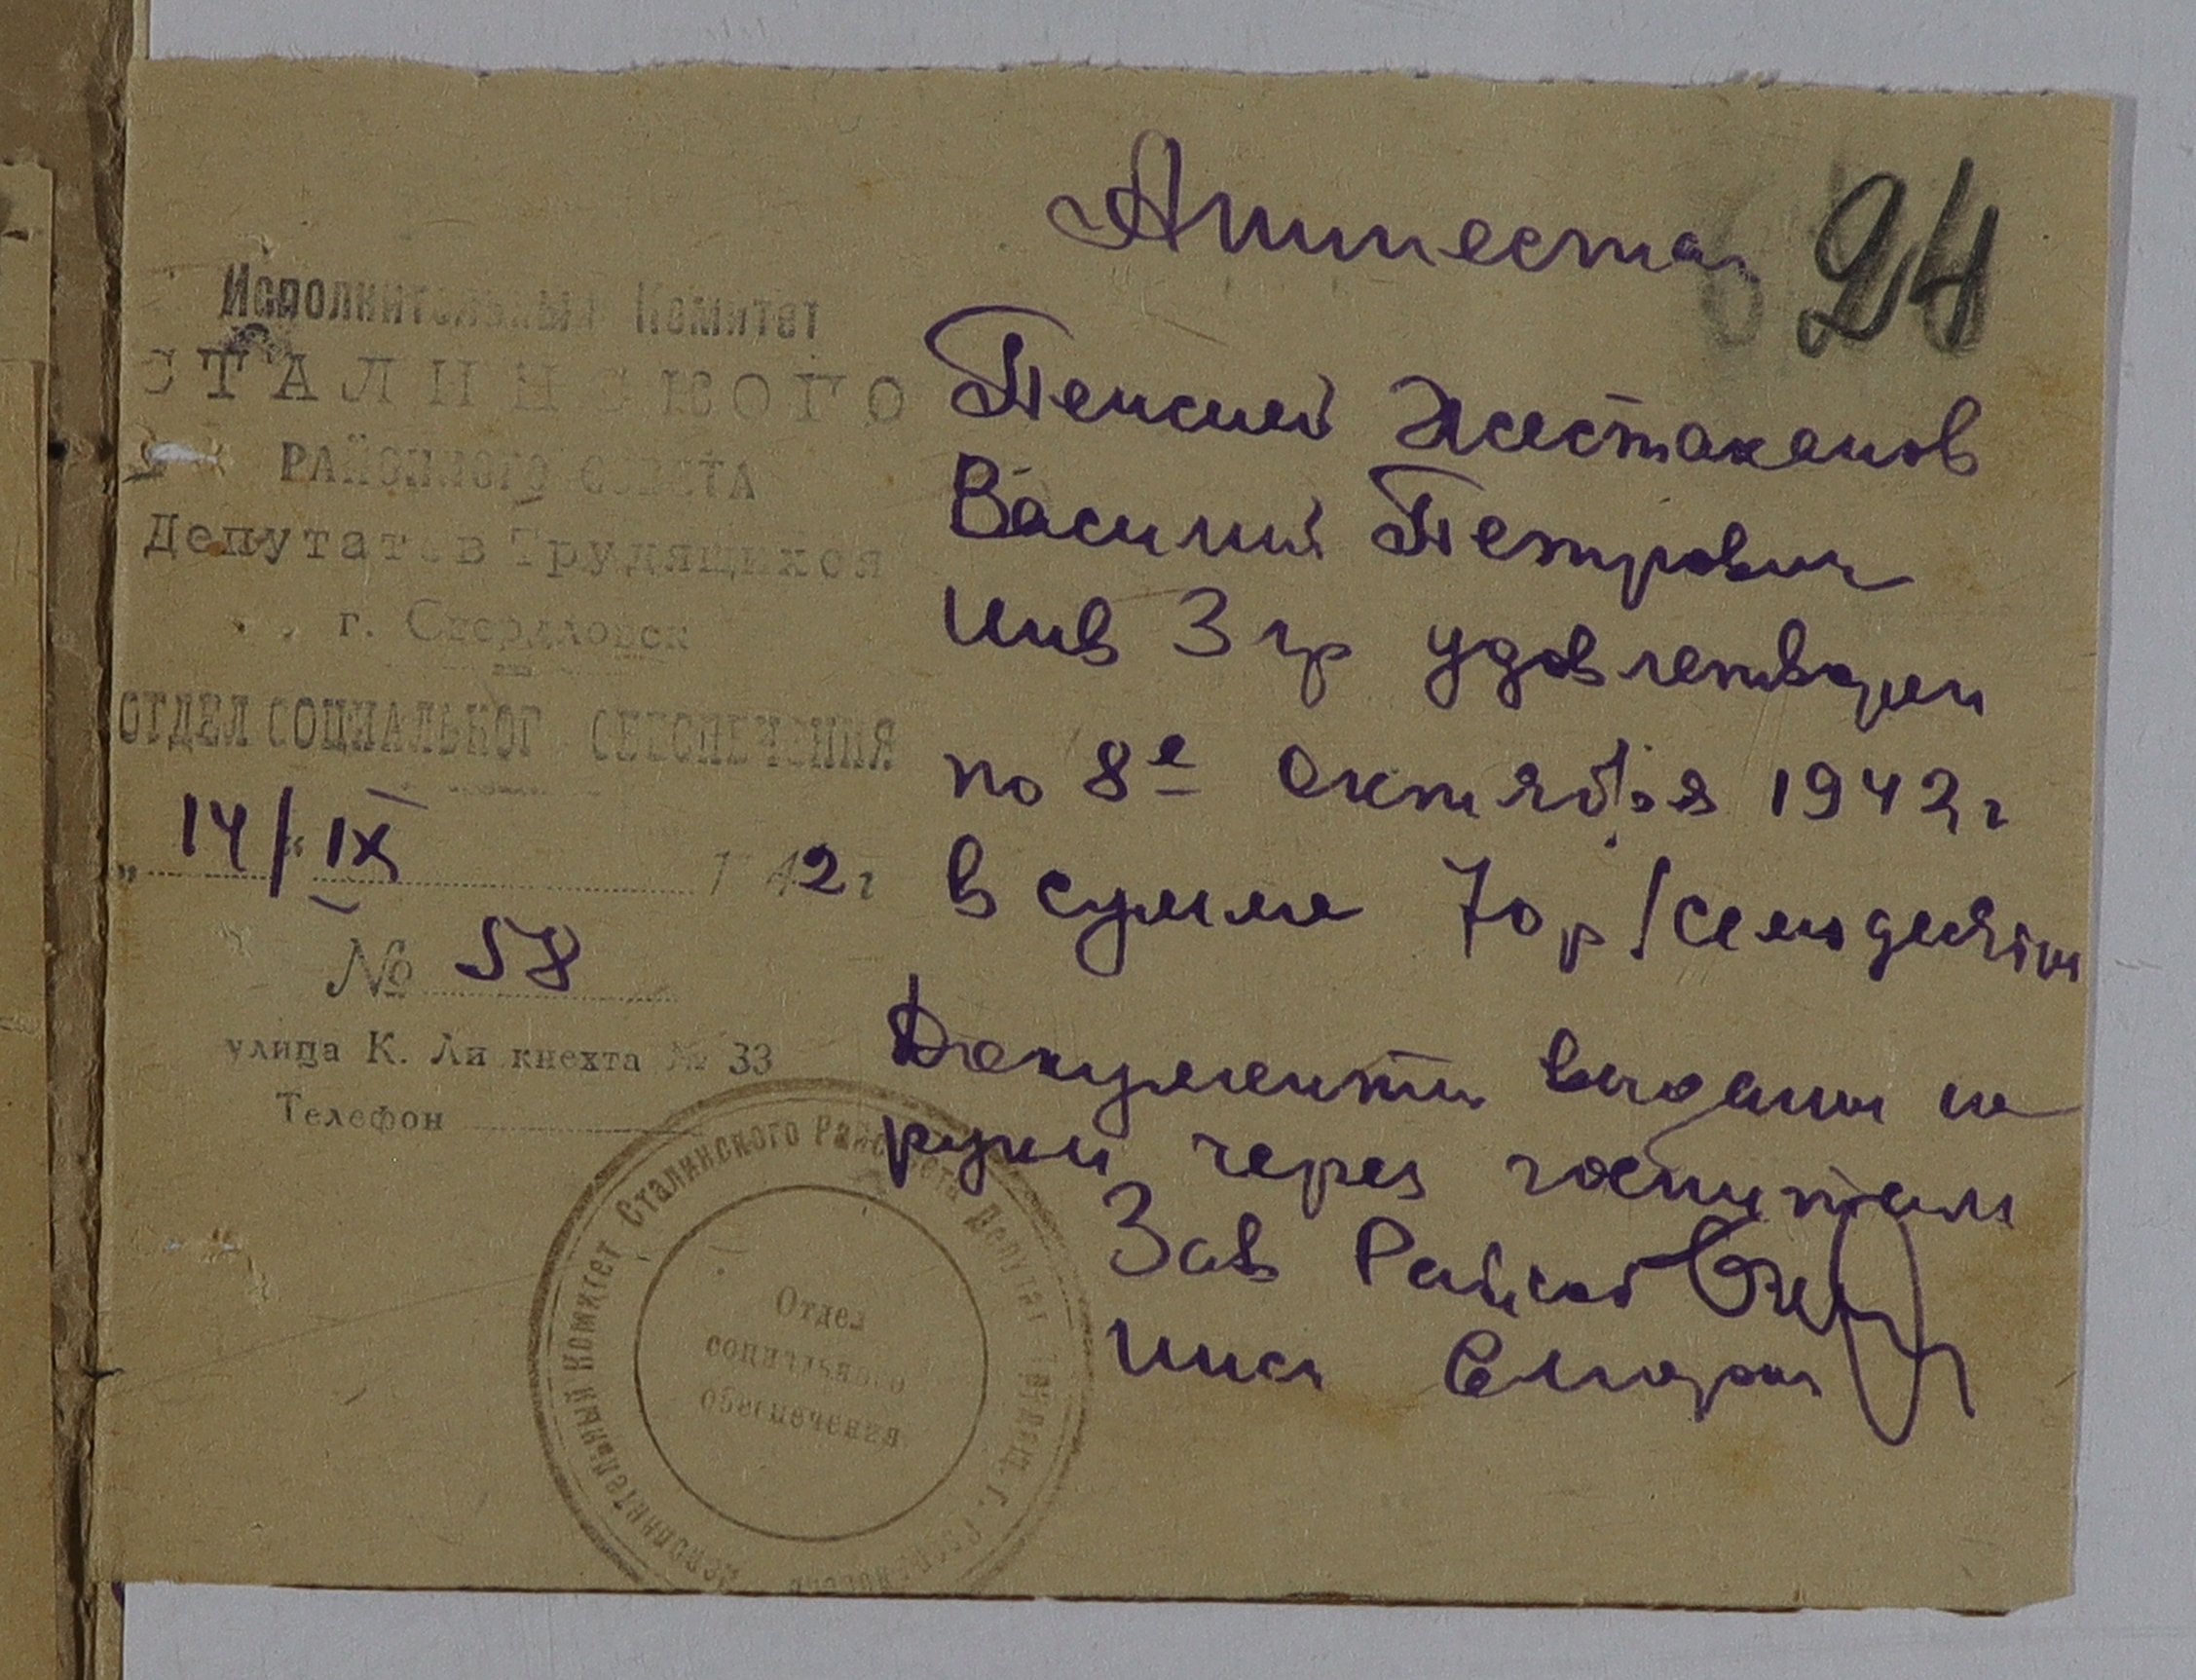 Исполнительный Комитет
СТАЛИНСКОГО
РАЙОННОГО СОВЕТА
Депутатов Трудящихся
г. Свердловск
ОТДЕЛ СОЦИАЛЬНОГ ОБЕСПЕЧЕНИЯ
„ 14/" IX 1 42 г
№ 58
улица К. Ли кнехта № 33
Телефон
Аттестат
24
Пенсией Жестаканов
Василий Петрович
инв 3 гр удовлетворен
по 8е октября 1942 г
в сумме 70 р/семьдесят
Документы выданы на
руки через госпиталь
Зав Райсоб
Инсп
Исполнительный Комитет Сталинского Райсовета Депутат Трудящ. г. Свердловска
Отдел
социального
обеспечения